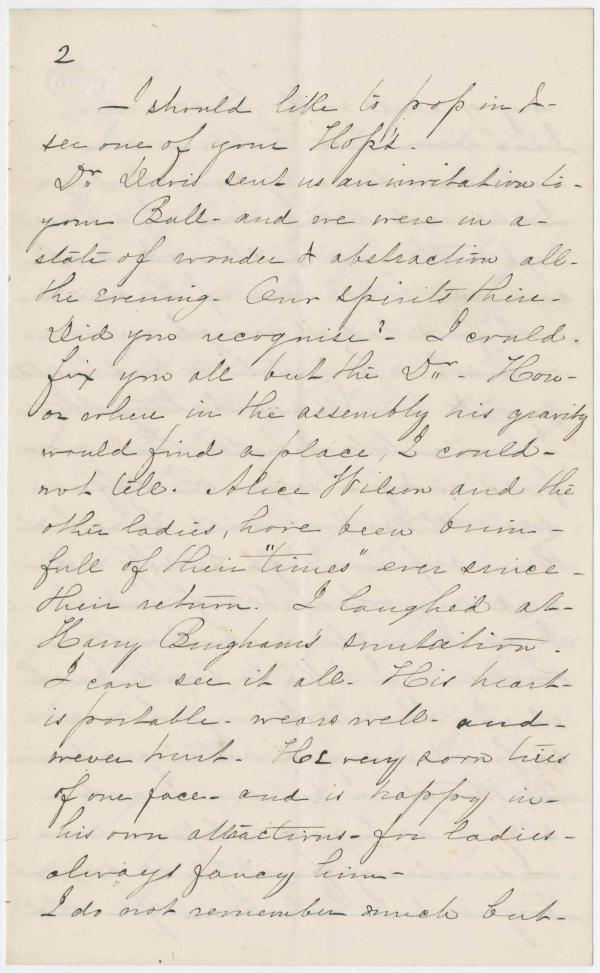 2
— I should like to pop in &-
see one of your Hop's.
Dr. Davis sent us an invitation to-
your Ball- and we were in a-
state of wonder & abstraction all-
the evening. Our spirits there-
Did you recognise?- I could-
fix you all but the Dr.- How-
or where in the assembly his gravity
would find a place, I could-
not tell. Alice Wilson and the
other ladies, have been brim-
full of their "times" ever since-
their return. I laughed at-
Harry Bingham's
I can see it all- His heart-
is portable- wears well- and-
never hurt- He very soon tires
of one face- and is happy in-
his own attractions- for ladies-
always fancy him-
I do not remember much but-